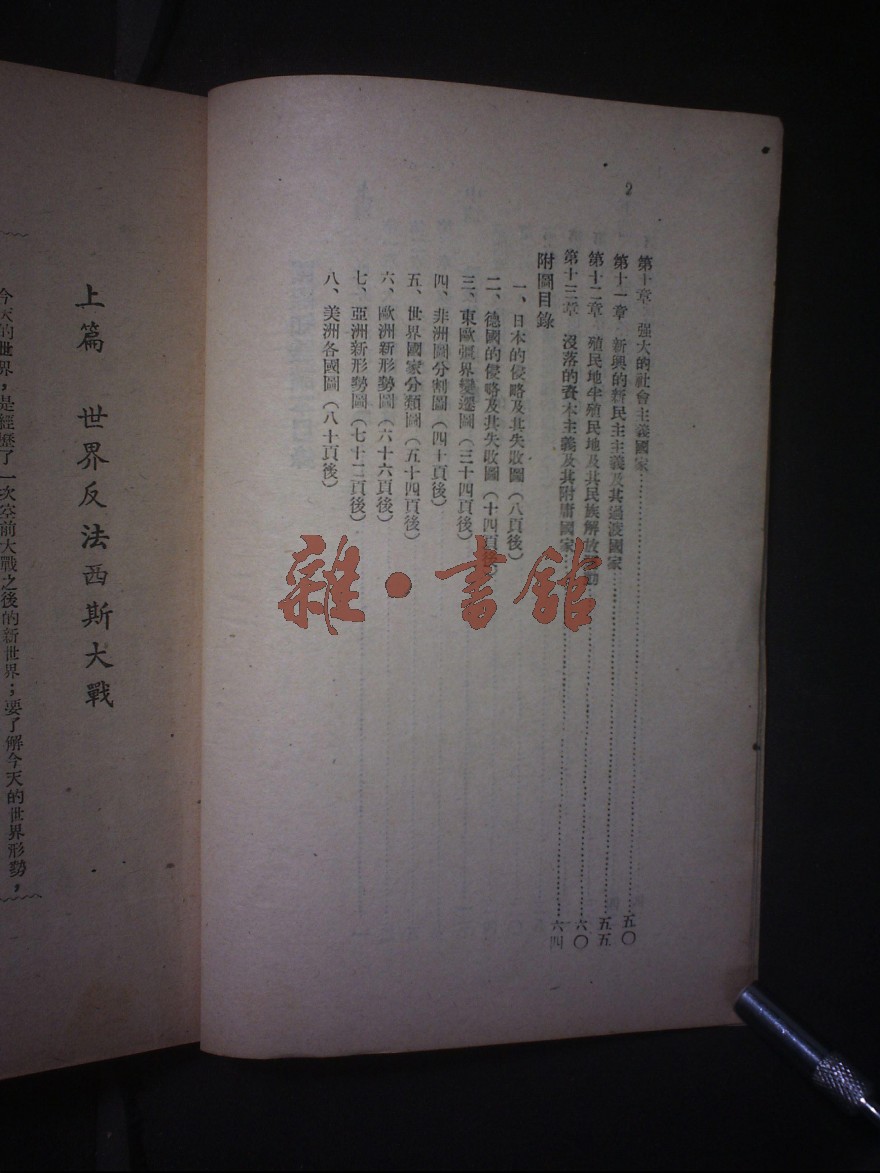 2
第十章　强大的社會主義國家……五〇
第十一章　新興的新民主主義及其過渡國家……五五
第十二章　殖民地半殖民地及其民族解放……六〇
第十三章　沒落的資本主義及其附庸國家……六四
附圖目錄
一、日本的侵略及其失敗圖（八頁後）
二、德國的侵略及其失敗圖（十四頁後）
三、東歐疆界變遷圖（三十四頁後）
四、非洲圖分割圖（四十頁後）
五、世界國家分類圖（五十四頁後）
六、歐洲新形勢圖（六十六頁後）
七、亞洲新形勢圖（七十二頁後）
八、美洲各國圖（八十頁後）
雜·書館
上篇　世界反法西斯大戰
今天的世界，是經歷了一次空前大戰之後的新世界；要了解今天的世界形勢，